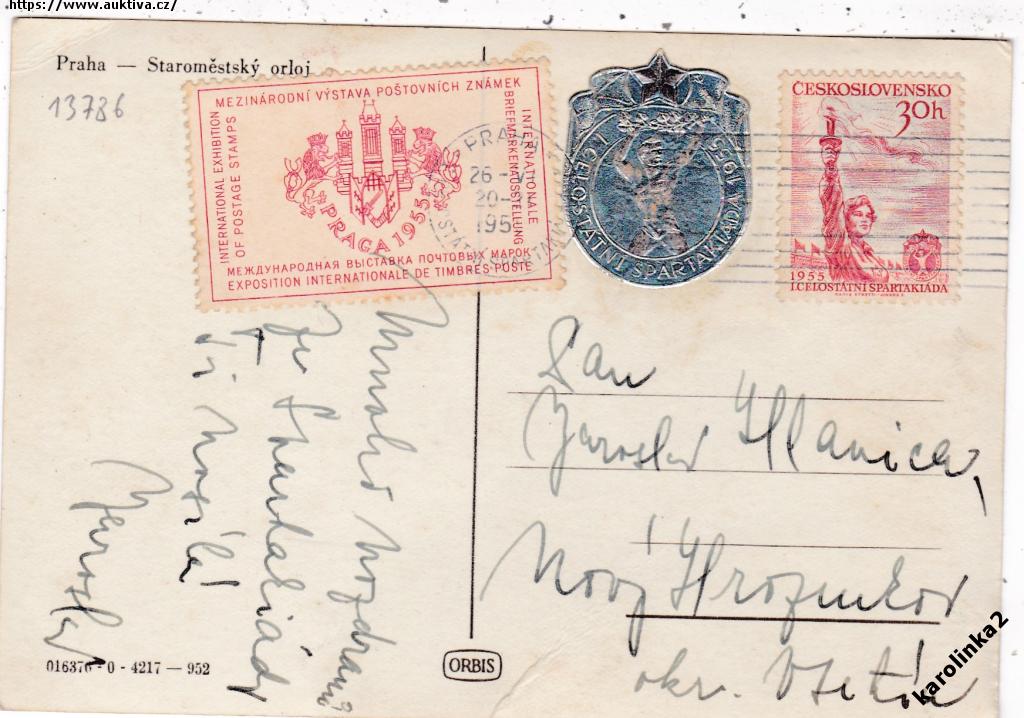 https://www.auktiva.cz/
Praha — Staroměstský orloj
13786
MEZINÁRODNÍ VÝSTAVA POŠTOVNÍCH ZNÁMEK
INTERNATIONAL EXHIBITION
OF POSTAGE STAMPS
INTERNATIONALE
BRIEFMARKENAUSSTELLUNG
PRAGA 1955
МЕЖДУНАРОДНАЯ ВЫСТАВКА ПОЧТОВЫХ МАРОК
EXPOSITION INTERNATIONALE DE TIMBRES-POSTE
PRAHA
26
20
195
I. CELOSTÁTNÍ SPARTAKIÁDA 1955
ČESKOSLOVENSKO
30h
1955
I. CELOSTÁTNÍ SPARTAKIÁDA
Mnoho pozdravů
ze Spartakiády
Ti posílá
Jaroslav
Pan
Jaroslav Hlanica,
Nový Hrozenkov
okr. Vsetín
016376 - 0 - 4217 — 952
ORBIS
karolinka2